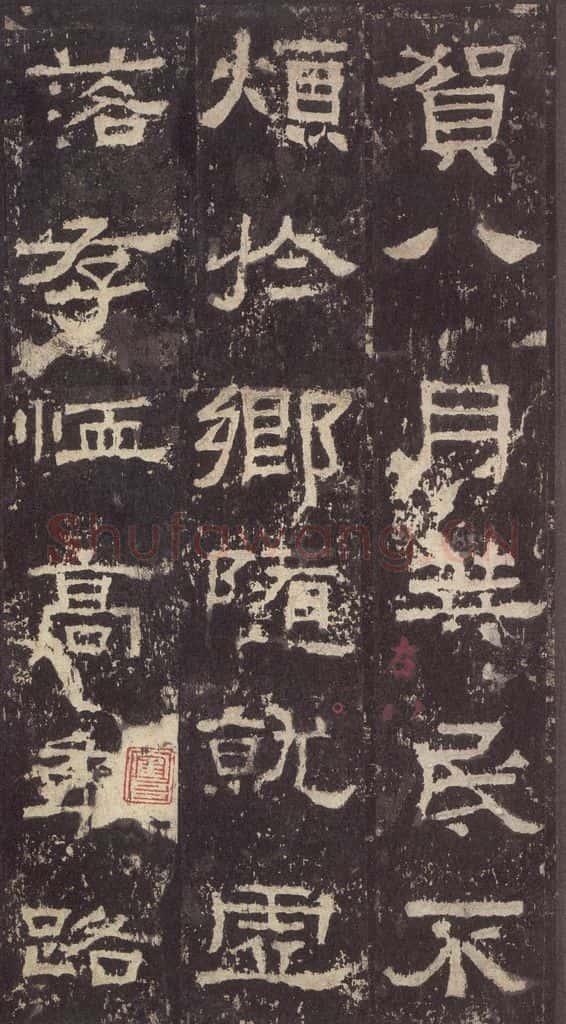 賀八月筭民不
煩於鄉隨就虛
落存恤高年路
Shufawang.CN